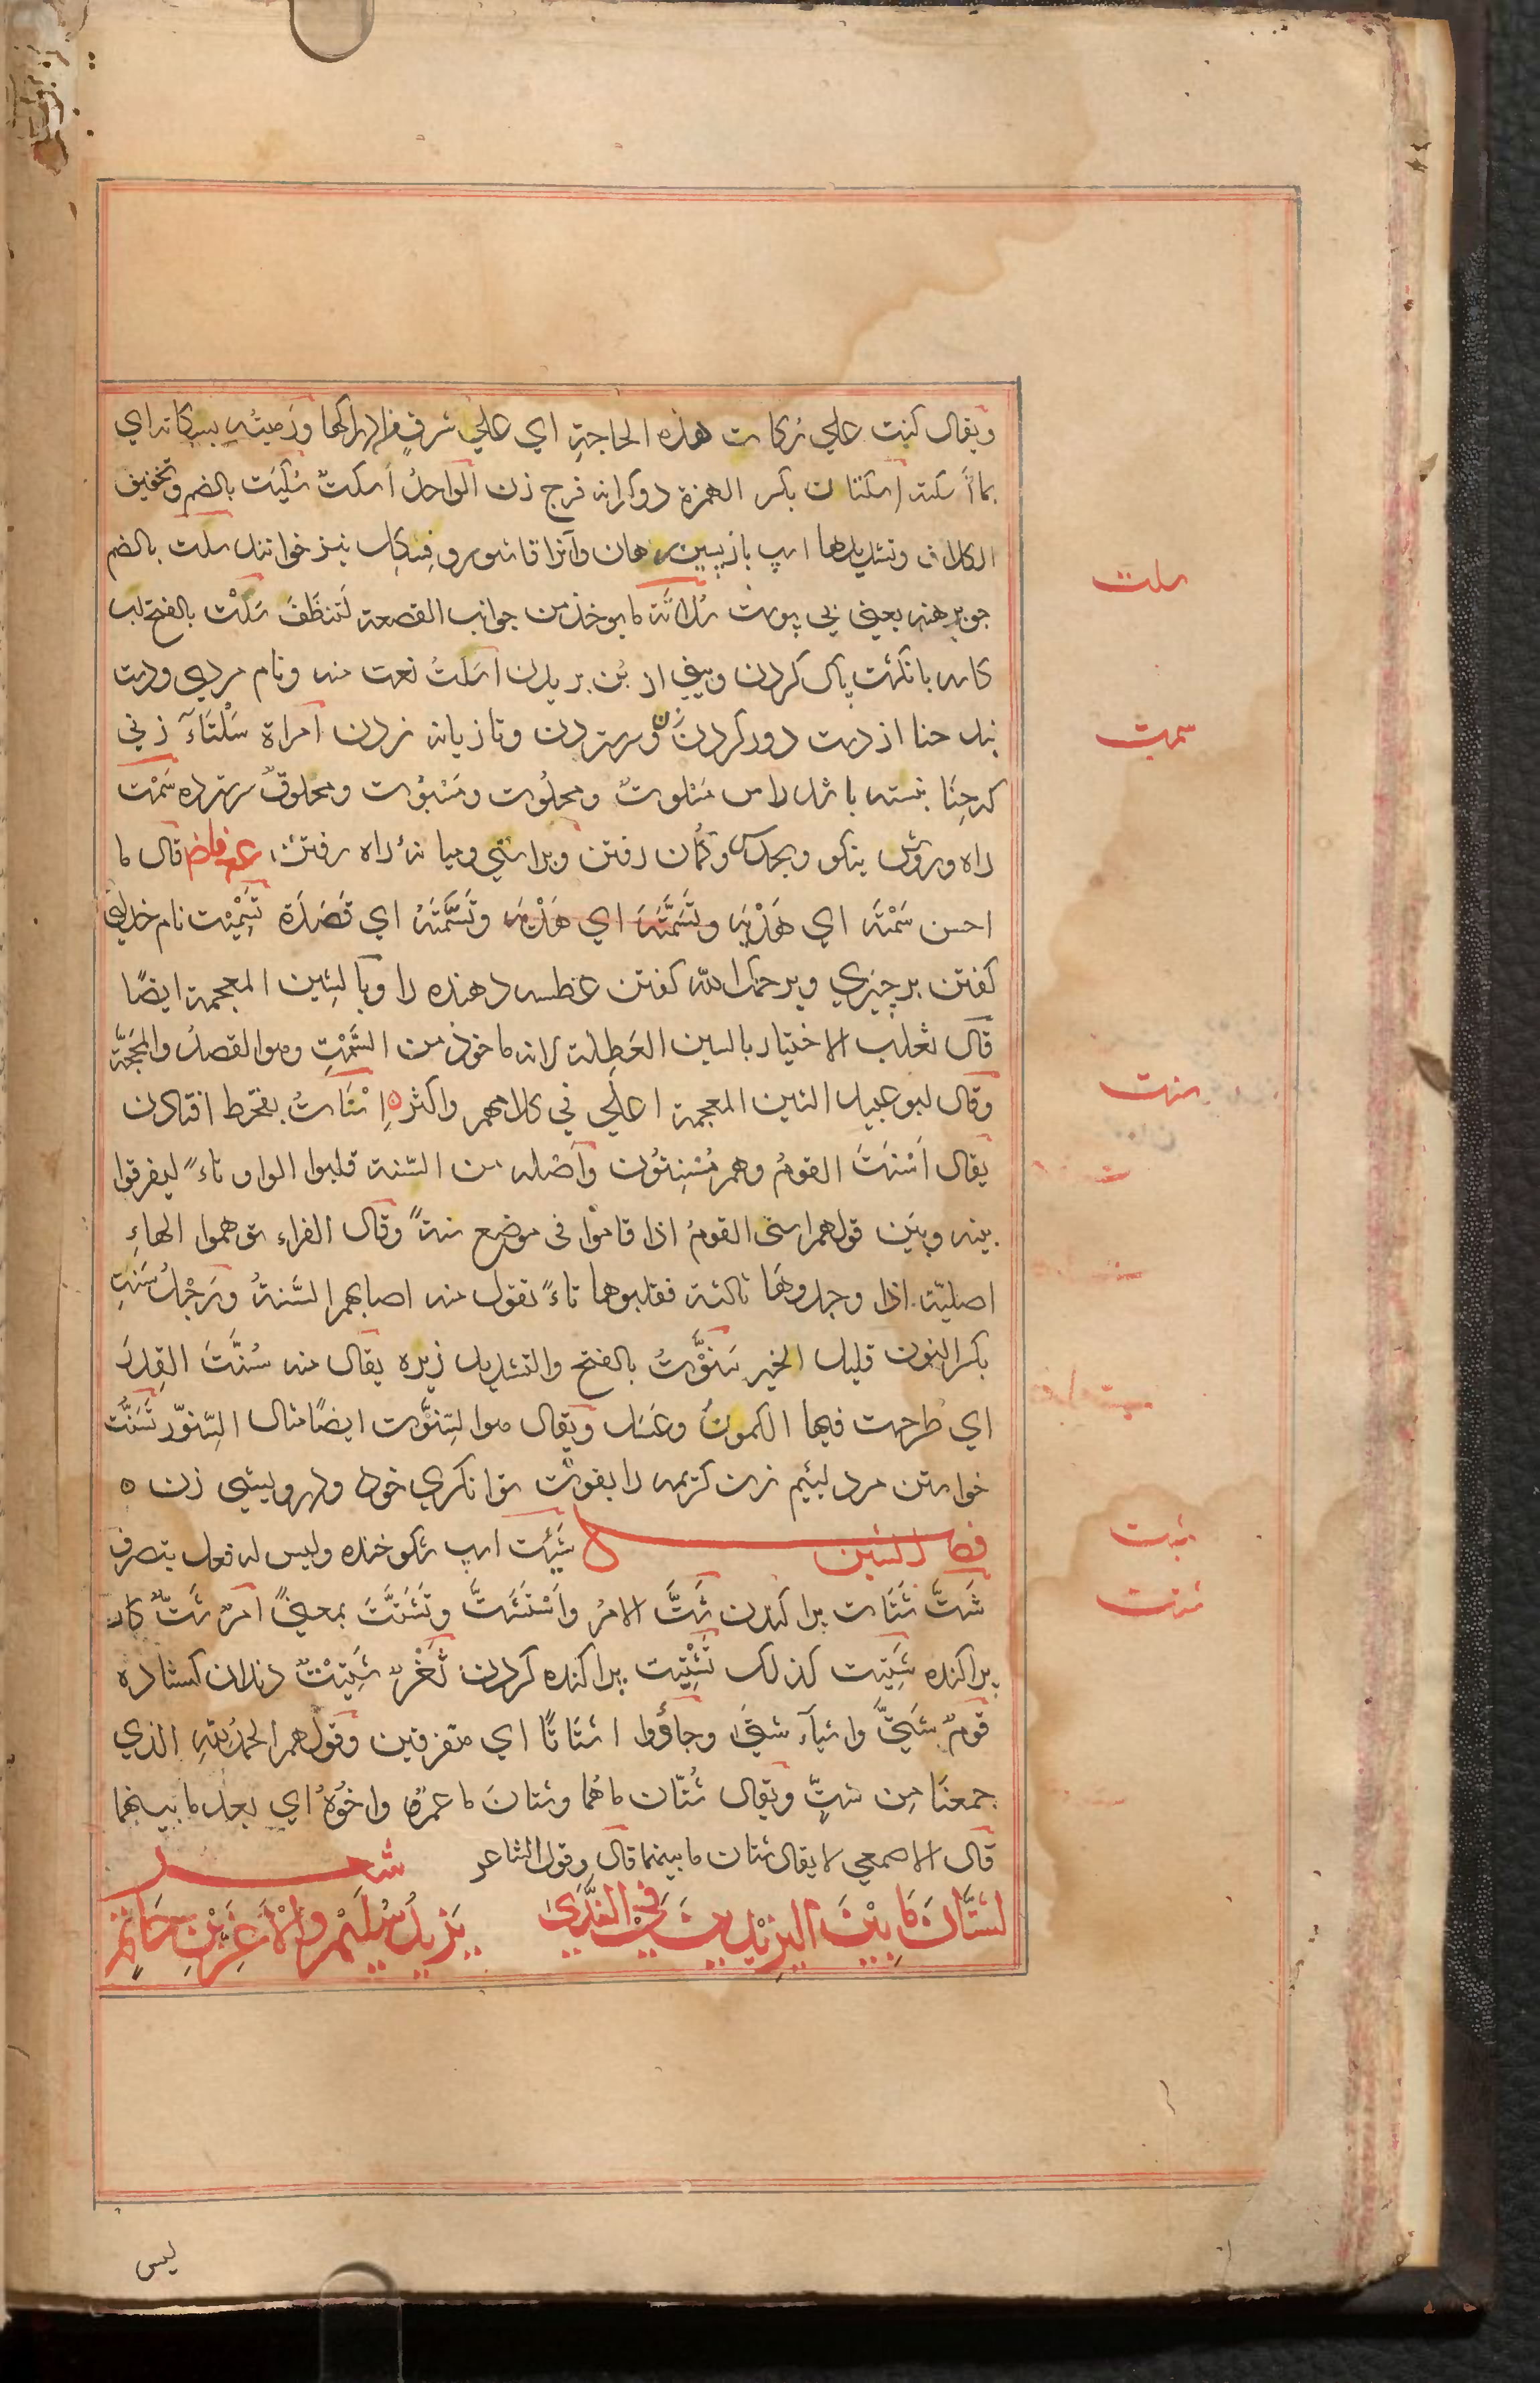 ويقال كنت علي سُكات هذه الحاجةِ اي علي شرفٍ من ادراكها ورَميتُه بسُكاته اي
بما اَسكته اِسكتان بكسر الهمزة دو كرانه فرج زن الواحدُ اَسكتٌ سُكَيت بالضم وتخفيف
الكاف وتشديدها اسپ بازپسين رهان وآنرا قاشور و فِسكِل نيز خوانند سلت بالضم
جو برهنه يعني بي پوست سُلاتَة ما يوخذ من جوانب القصعة لتنظَفَ سَلْت بالفتح لب
كاسه بانگشت پاك كردن وبيني از بُن بريدن اَسلتُ نعت منه ونام مردي ودست
بند حنا از دست دور كردن زن وسر ستردن وتازيانه زدن امراة سَلْتَآءَ زني
كه حِنّا نبسته باشد راس مَسلوتٌ ومحلُوت ومَسْبُوت ومحلوقٌ سر سترده سَمْت
راه وروش نيكو وبحدس وگُمان رفتن وبراستي وميانهٔ راه رفتن، عن فاض قال ما
احسن سَمْتَه اي هَدْيَه وتَسَمَّتَه اي هَدْيَه وتَسَمَّتَهُ اي قَصَدَهُ تَسْمِيْت نام خداي
گفتن بر چيزي ويرحمك الله گفتن عطسه دهنده را وبالشِين المعجمة ايضًا
قال ثعلب الاختيار بالسين العَطِلة لانه ماخوذ من السَّمْتِ وهو القصدُ والمَحَجَّة
وقال ابو عبيد الشين المعجمة اعلي في كلامهم واكثر ه اِسْنَاتُ بقحط افتادن
يقال اَسْنَتَ القومُ وهم مُسْنِتُون واَصْله من السّنة قلبوا الواو تاءً ليفرقوا
بينه وبَين قولهم اسني القومُ اذا قاموا في موضع سنةً وقال الفراء توهموا الهاءِ
اصليّة اذا وجدوهَا ثالثة فقلبوها تاءً تقول منه اصابهم السَّنةُ ورَجُلٌ سَنِت
بكسر النون قليل الخير سَنوُّتُ بالفتح والتشديد زيره يقال منه سُنَّتَ القِدرَ
اي طرحت فيها الكمونُ وعَسَل ويقال هو السِّنوَّت ايضًا مثال السِّنوّر تَسَنَّت
خواستن مرد لئيم زن كريمه را بقوت توانگري خود ودرويشي زن ه
فصل الشين شَئِت اسپ شكوخنده وليس له فعل يتصرف
شَتَّ شَتَات پراكندن شَتَّ الامرُ واَسْتَشَتَّ وتَشَتَّتَ بمعنيً امرٌ شَتٌّ كار
پراكنده شَتِيت كذلك تَشْتِيت پراكنده كردن ثَغْرٌ شَتِيْتٌ دندان كشاده
قومٌ شَتَيَّ واشيآء شتيَ وجاؤا اشتَاتًا اي متفرقين وقولهم الحمدُ للهِ الذي
جمعنَا مِن شتٍّ ويقال شتّان ماهُما وشتانَ ما عمرٌو واخُوهُ اي بعد ما بينهما
قال الاصمعي لا يقال شتان ما بينهما قال وقول الشاعر شعر
لشتَّانَ مَا بيْنَ اليزيْدين في الندَّي يزيدُ سُليْم والاَغَرِّ بْنِ حَاتِمِ
سلت
سمت
سنت
شئت
شتت
ليس